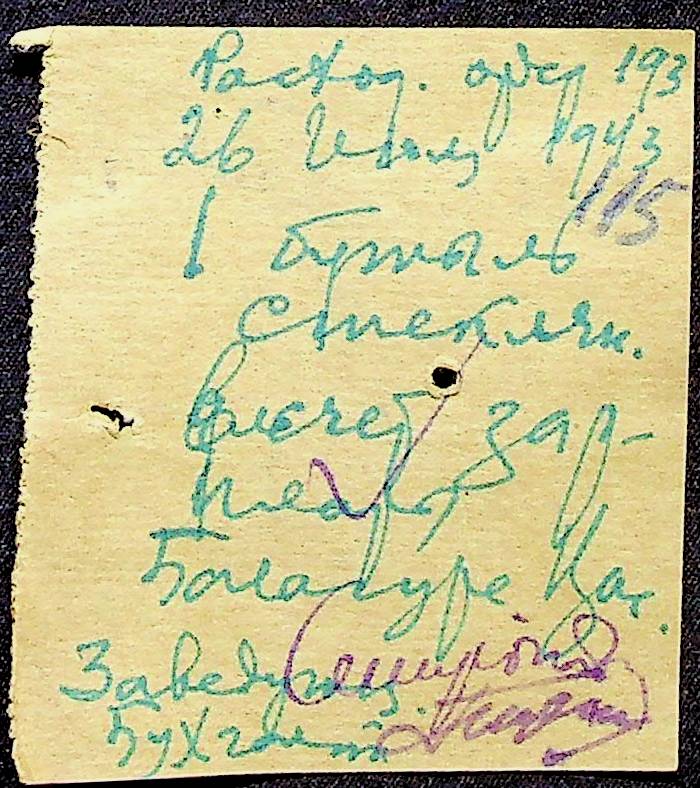 Расход. ордер 193
26 Июля 1943
115
1 бутыль
стеклян.
в счет зар-
платы
Балагуре
Заведующ.
Бухгалтер